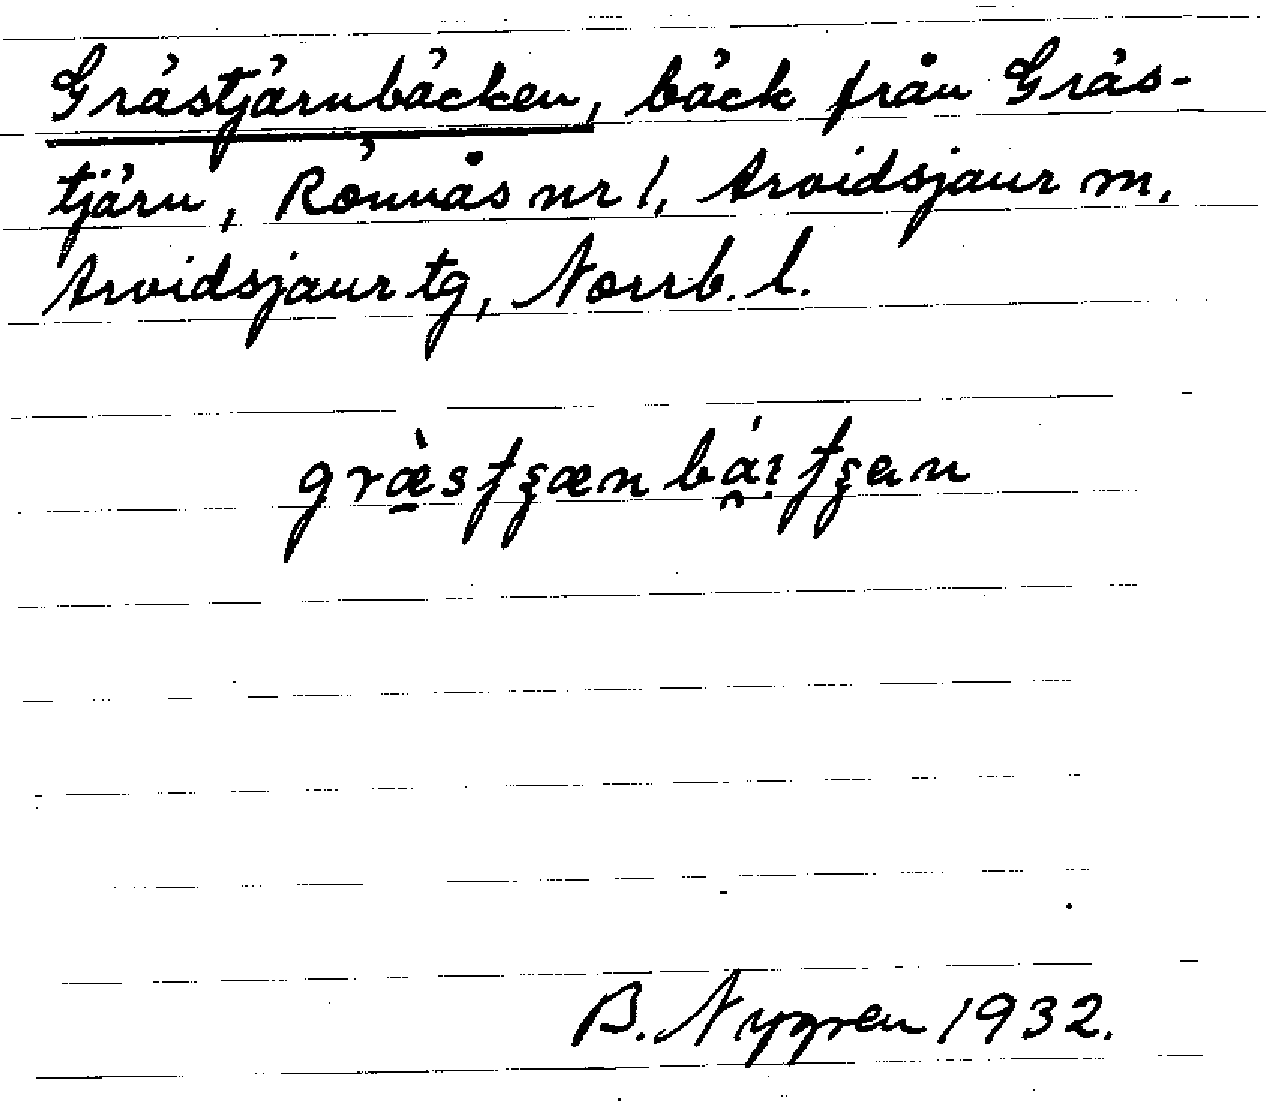 Grästjärnbäcken, bäck från Gräs-
tjärn, Rönnås nr 1, Arvidsjaur m,
Arvidsjaur tg, Norrb. l.
B. Nygren 1932.